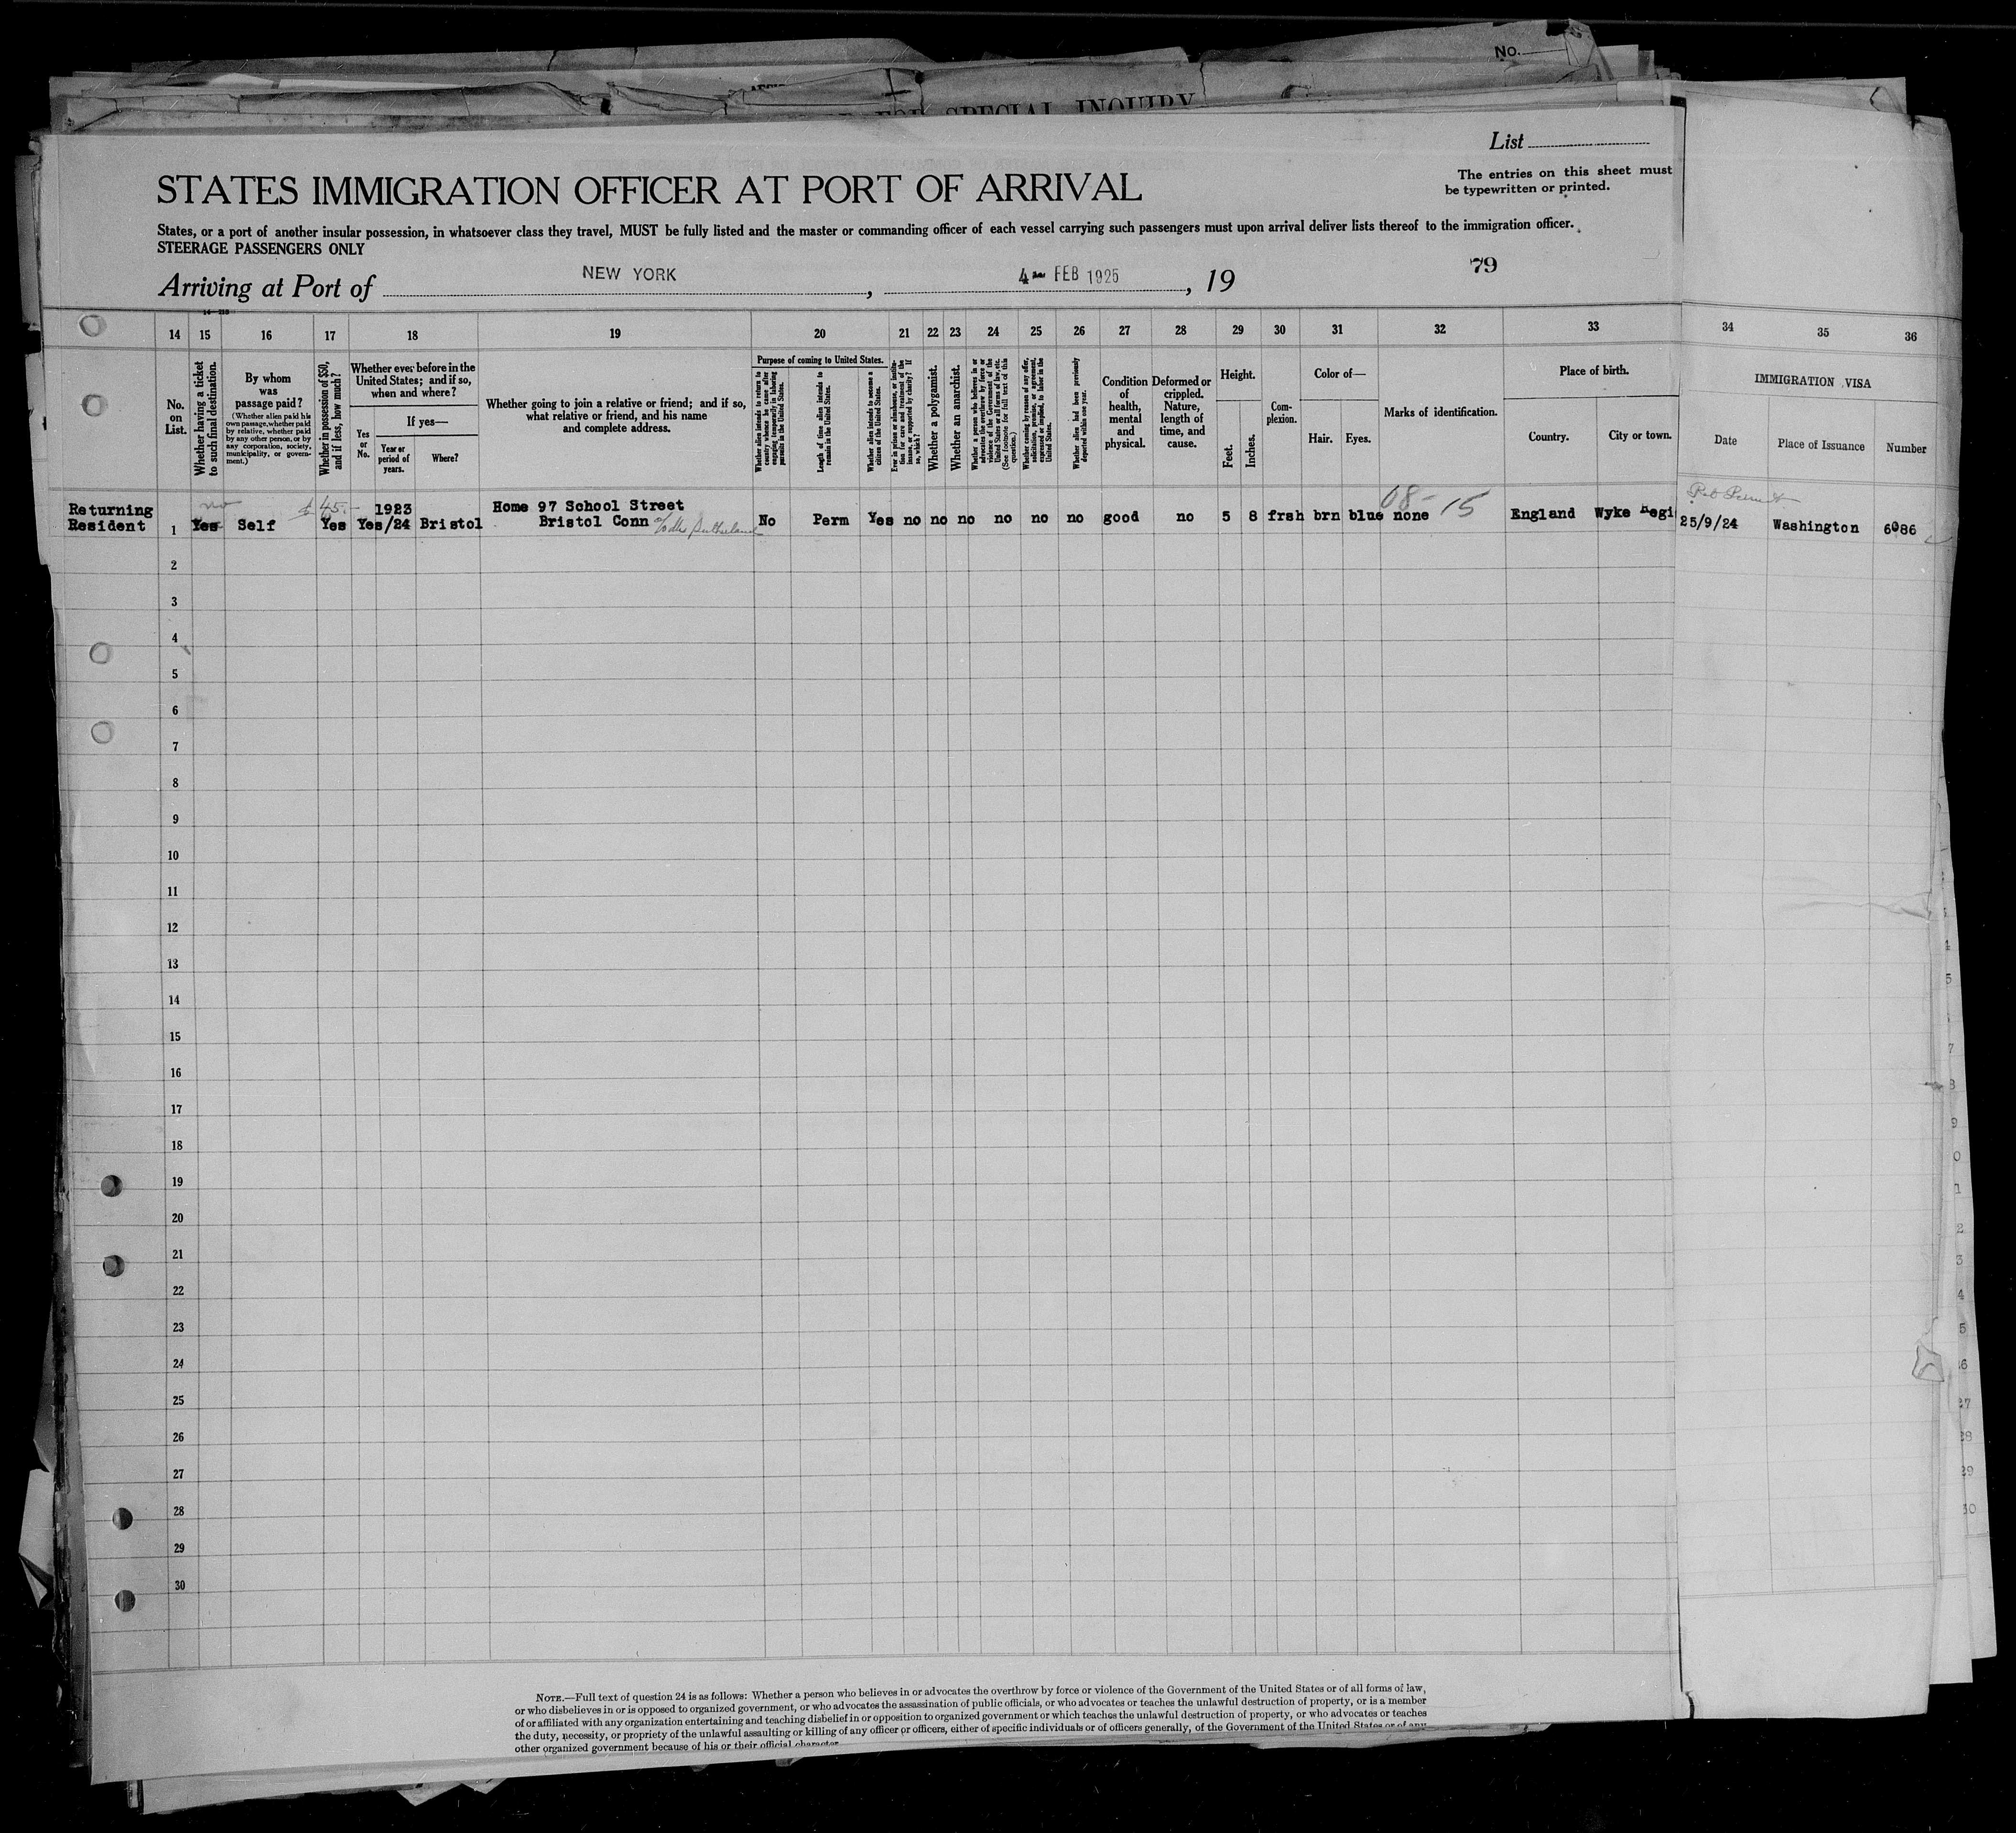 No.
FOR SPECIAL INQUIRY
List
The entries on this sheet must
be typewritten or printed.
STATES IMMIGRATION OFFICER AT PORT OF ARRIVAL
States, or a port of another insular possession, in whatsoever class they travel, MUST be fully listed and the master or commanding officer of each vessel carrying such passengers must upon arrival deliver lists thereof to the immigration officer.
STEERAGE PASSENGERS ONLY
Arriving at Port of NEW YORK, 4 FEB 1925, 19
79
14 15 16 17 18 19 20 21 22 23 24 25 26 27 28 29 30 31 32 33 34 35 36
No. on List.
Whether having a ticket to such final destination.
By whom was passage paid?
(Whether alien paid his own passage, whether paid by relative, whether paid by any other person, or by any corporation, society, municipality, or government.)
Whether in possession of $50, and if less, how much?
Whether ever before in the United States; and if so, when and where?
Yes or No.
If yes—
Year or period of years.
Where?
Whether going to join a relative or friend; and if so, what relative or friend, and his name and complete address.
Purpose of coming to United States.
Whether alien intends to return to country whence he came after engaging temporarily in laboring pursuits in the United States.
Length of time alien intends to remain in the United States.
Whether alien intends to become a citizen of the United States.
Ever in prison or almshouse, or institution for care and treatment of the insane, or supported by charity? If so, which?
Whether a polygamist.
Whether an anarchist.
Whether a person who believes in or advocates the overthrow by force or violence of the Government of the United States or all forms of law, etc. (See footnote for full text of this question.)
Whether coming by reason of any offer, solicitation, promise, or agreement, expressed or implied, to labor in the United States.
Whether alien had been previously deported within one year.
Condition of health, mental and physical.
Deformed or crippled. Nature, length of time, and cause.
Height.
Feet. Inches.
Complexion.
Color of—
Hair. Eyes.
Marks of identification.
Place of birth.
Country. City or town.
IMMIGRATION VISA
Date Place of Issuance Number
no $45.— 08- 15
Returning 1923 Home 97 School Street
Resident 1 Yes Self Yes Yes/24 Bristol Bristol Conn Sutherland No Perm Yes no no no no no no good no 5 8 frsh brn blue none England Wyke Regi 25/9/24 Washington 6086
2
3
4
5
6
7
8
9
10
11
12
13
14
15
16
17
18
19
20
21
22
23
24
25
26
27
28
29
30
NOTE.—Full text of question 24 is as follows: Whether a person who believes in or advocates the overthrow by force or violence of the Government of the United States or of all forms of law,
or who disbelieves in or is opposed to organized government, or who advocates the assassination of public officials, or who advocates or teaches the unlawful destruction of property, or is a member
of or affiliated with any organization entertaining and teaching disbelief in or opposition to organized government or which teaches the unlawful destruction of property, or who advocates or teaches
the duty, necessity, or propriety of the unlawful assaulting or killing of any officer or officers, either of specific individuals or of officers generally, of the Government of the United States or of any
other organized government because of his or their official character.